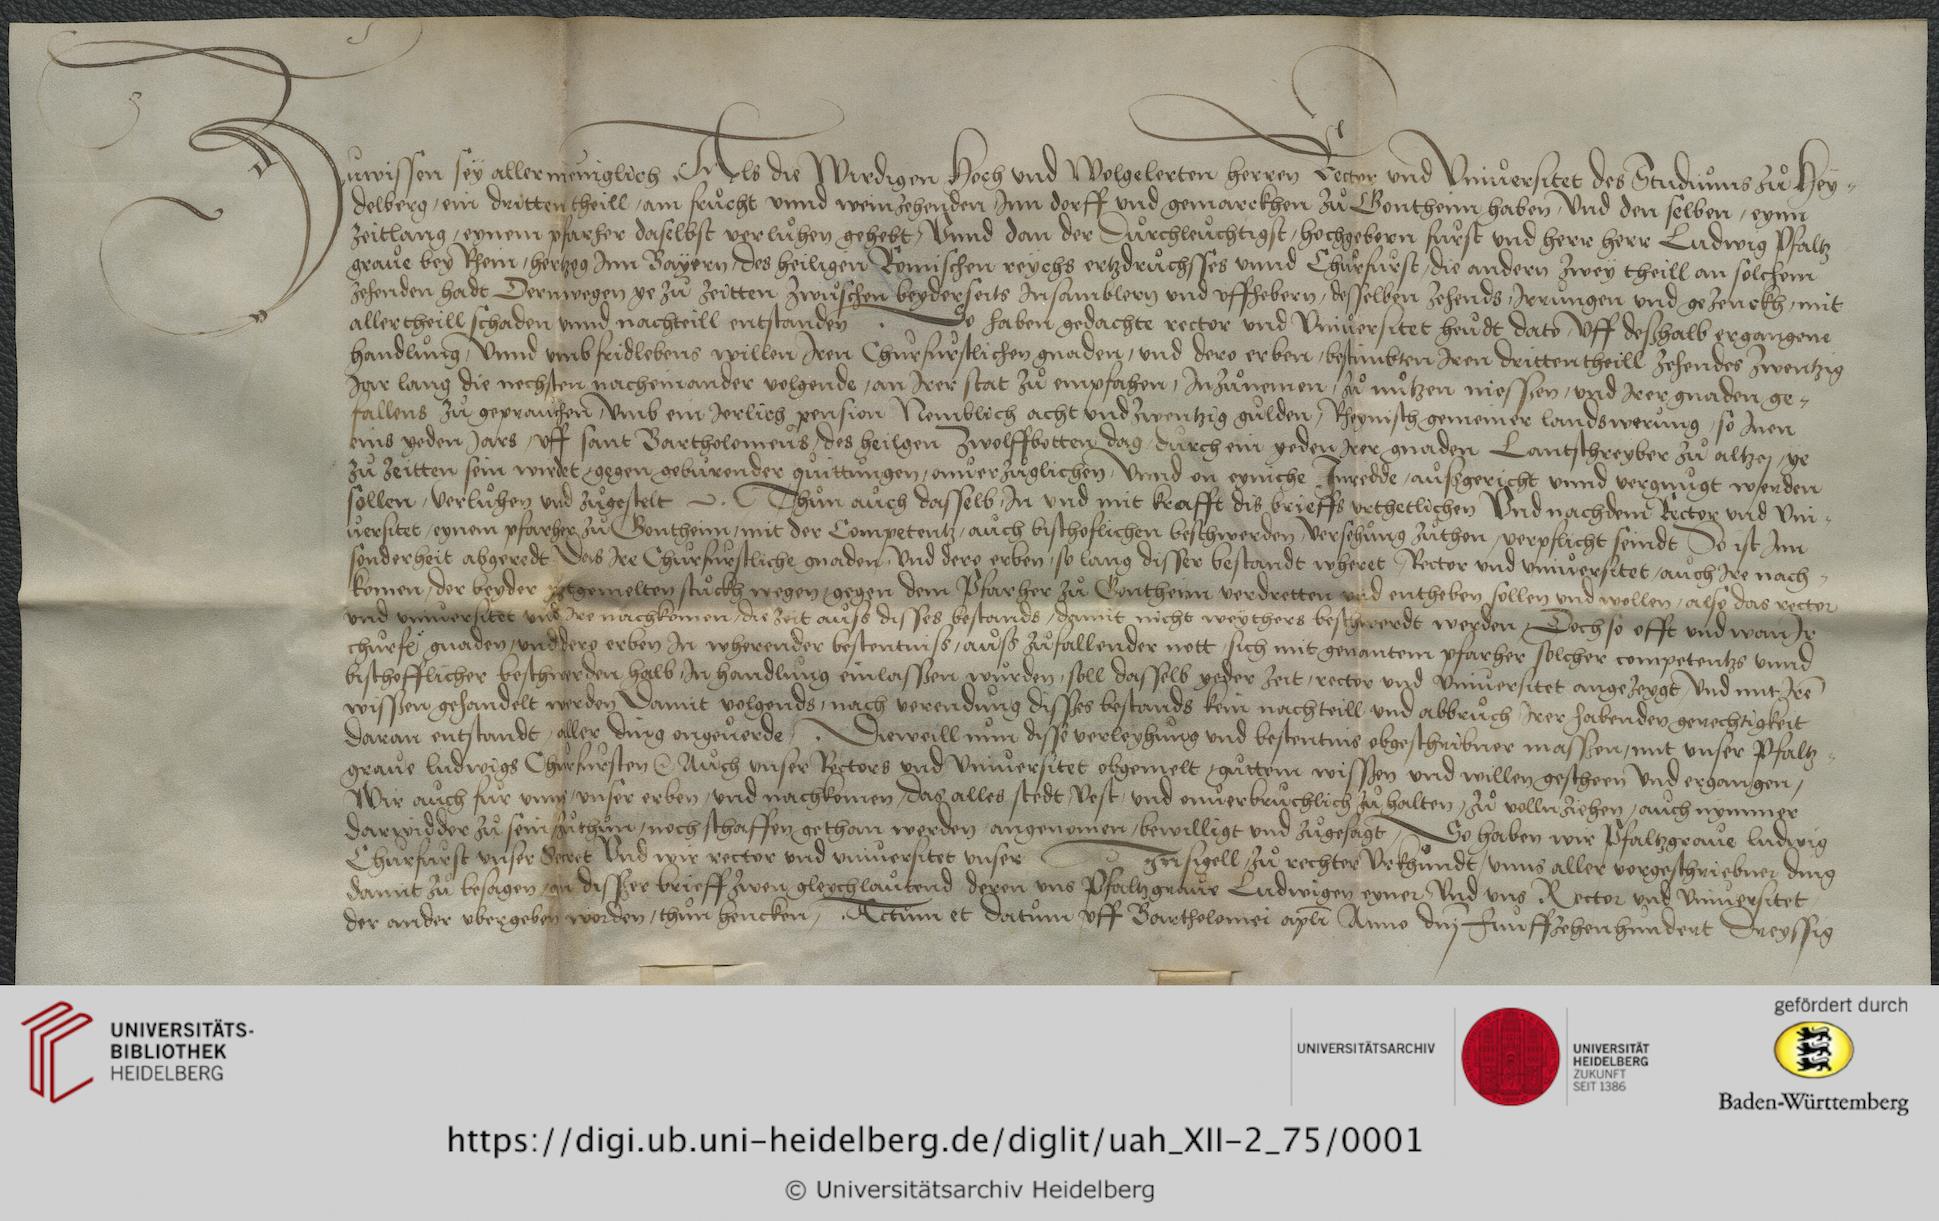 Zuwissen sey allermeniglich Als die Wirdigen Hoch und Wolgelerten herren Rector und Vniuersitet des Studiums zu Hey-
delberg / ein dritten theill / am frucht vnnd weinzehenden / Inn dorff und gemarckhen zu Gontheim haben / Vnd den selben / eynn
zeitlang / eynem pfarher daselbst verluhen gehebt / Vnnd dan der Durchleuchtigst / hochgeborn furst und herr herr Ludwig Pfaltz
graue bey Rhein / hertzog Inn Bayern / des heiligen Romischen reychs ertzdruchsses vnnd Churfurst / die andern zwey theill an solchem
zehenden hadt Dernwegen ye zu zeitten zwuschen beyderseits Insamblern und vffhebern / desselben zehends / Irrungen und gezenckh / mit
allertheill schaden vnnd nachteill entstanden So haben gedachte rector und Vniuersitet heudt dato / Vff deßhalb ergangene
handlung / Vnnd vmb fridlebens willen Iren Churfurstlichen gnaden / und dero erben / bestimbten Iren dritten theill zehendes zwentzig
Jar lang die nechsten nacheinander volgende / an Irer stat zu empfahen / Inzunemen / zu nutzen niessen / und Irer gnaden ge-
fallens zu geprauchen / Vmb ein Jerlich pension Nemblich acht und zwentzig gulden / Rheynisch gemeiner landswerung / so Inen
eins yeden Jars / vff sant Bartholomeus / des heilgen Zwolffbotten dag / durch ein yeden Irer gnaden Lantschreyber zu altzey / ye
zu zeitten sein wirdet / gegen geburender quittungen / onuerzuglichen / Vnnd on eyniche Inredde / außgericht vnnd vergnugt werden
sollen / verluhen und zugestelt Thun auch dasselb / In und mit krafft dis brieffs Vnd nachdem Rector und Vni-
uersitet / eynem pfarher zu Gontheim / mit der Competentz / auch bischoflichen beschwerden / Versehung zuthon / verpflicht seindt So ist Inn
sonderheit abgeredt Das Ire Churfurstliche gnaden / Vnd dero erben / so lang disser bestandt wheret Rector und vniuersitet / auch Ire nach-
komen / der beyder stuckh wegen / gegen dem Pfarher zu Gontheim verdretten und entheben sollen und wollen / also das rector
und vniuersitet und Ire nachkomen / die zeit auß disses bestands / damit nicht weythers beschwerdt werden / Doch so offt und wan Ir
churf gnaden / und dero erben In wherender bestentniß / auß zufallender nott / sich mit genantem pfarher solcher competentz vnnd
bischofflicher beschwerden halb / In handlung einlassen wurden / soll dasselb yeder zeit / rector und Vniuersitet angezeygt Vnd mit Ire
wissen gehandelt werden Damit volgends / nach verendung disses bestands kein nachteill und abbruch Irer habenden gerechtigkeit
daran entstandt / aller ding ongeuerde / Dieweill nun disse verleyhung und bestentnis obgeschribner massen / mit unser Pfaltz-
graue ludwigs Churfursten Auch unser Rectors und Vniuersitet obgemelt / guttem wissen und willen gescheen Vnd ergangen /
Wir auch fur vnns / vnser erben / und nachkomen / das alles stedt / Vest / und onuerbruchlich zu halten / zu volnziehen / auch nymmer
darwidder zu sein / zuthun / noch schaffen gethan werden / angenomen / bewilligt und zugesagt / So haben wir Pfaltzgraue ludwig
Churfurst unser Secret Vnd wir rector und vniuersitet unser Insigell / zu rechter Vrkhundt / vnns aller vorgeschriebner ding
damit zu besagen / an disser brieff zwen gleychlautend deren uns Pfaltzgraue Ludwigen eyner / Vnd uns Rector und Vniuersitet
der ander vbergeben worden / thun hencken / Actum et datum vff Bartholomei apli Anno dnj Funffzehenhundert Dreyssig
UNIVERSITÄTS-
BIBLIOTHEK
HEIDELBERG
UNIVERSITÄTSARCHIV
UNIVERSITÄT
HEIDELBERG
ZUKUNFT
SEIT 1386
gefördert durch
Baden-Württemberg
https://digi.ub.uni-heidelberg.de/diglit/uah_XII-2_75/0001
© Universitätsarchiv Heidelberg